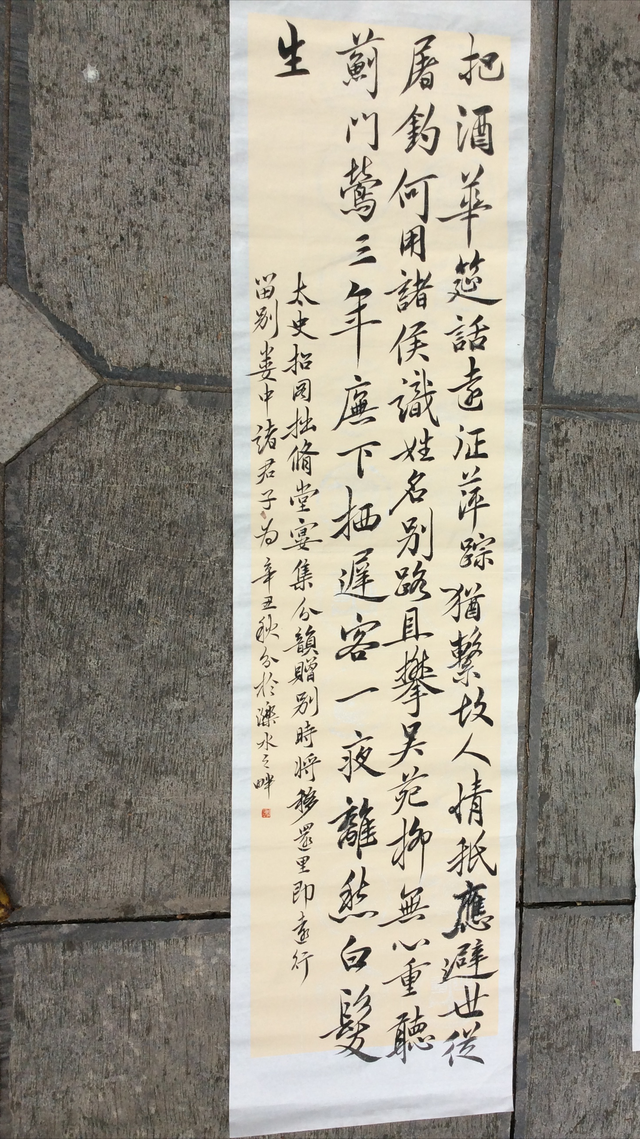 把酒華筵話遠征萍踪猶繫故人情秖應避世從
屠釣何用諸侯識姓名別路且攀吳苑柳無心重聽
薊門鶯三年廡下栖遲客一夜離愁白髮
生
太史招同拙脩堂宴集分韻贈別時將移還里即遠行
留別婁中諸君子為辛丑秋分於濼水之畔